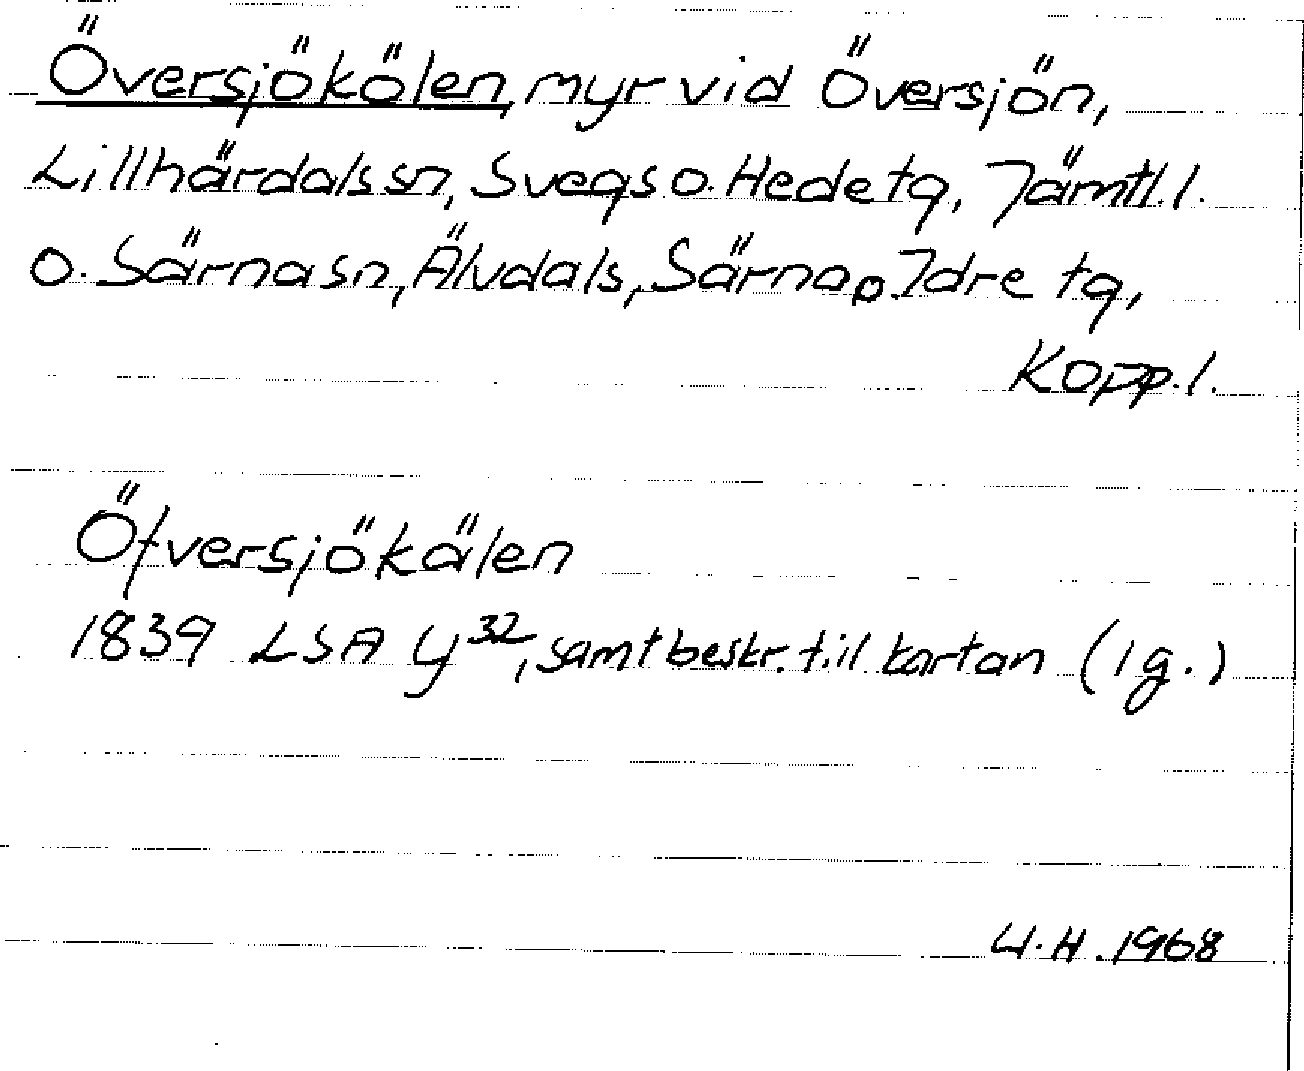 Översjökölen, myr vid Översjön,
Lillhärdals sn, Svegs o. Hede tg, Jämtl. l.
o. Särna sn, Älvdals, Särna o. Idre tg,
Kopp. l.
Öfversjökälen
1839 LSA Y³², samt beskr. till kartan (1 g.)
U. H. 1968